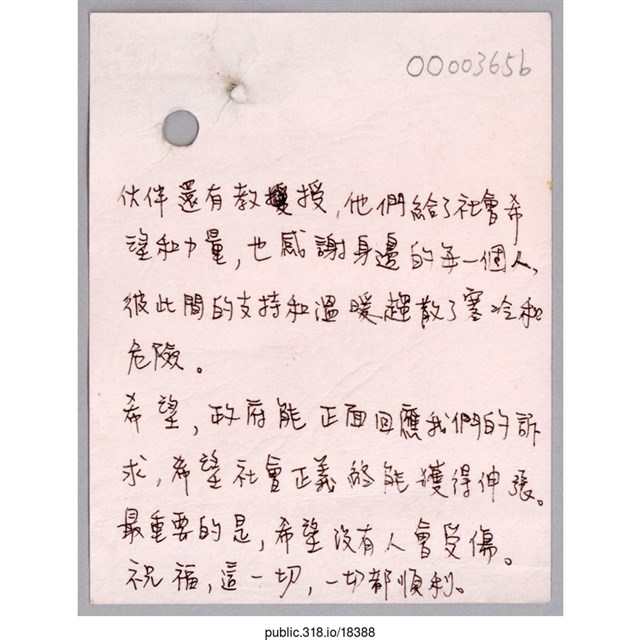 00003656
伙伴還有教授,他們給了社會希
望和力量,也感謝身邊的每一個人,
彼此間的支持和溫暖趨散了寒冷和
危險。
希望,政府能正面回應我們的訴
求,希望社會正義終能獲得伸張。
最重要的是,希望沒有人會受傷。
祝福,這一切,一切都順利。
public.318.io/18388